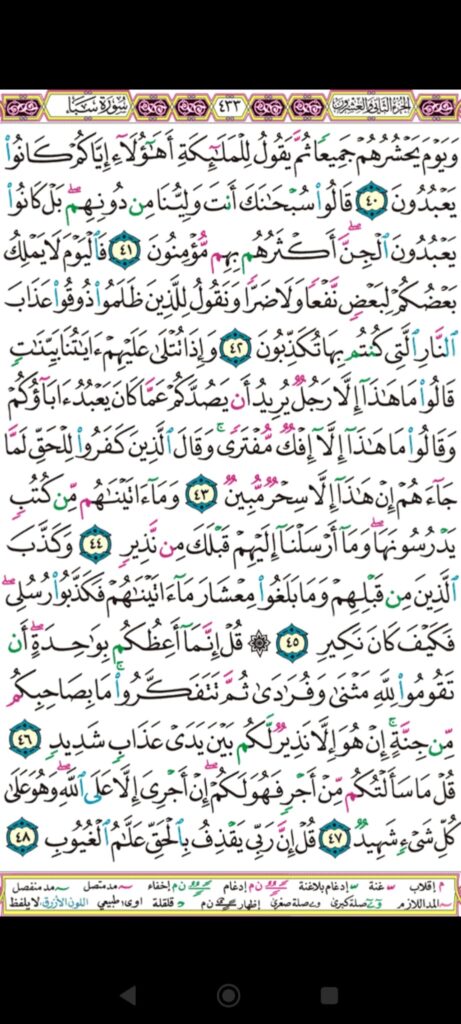 الجزء الثاني والعشرون ٤٣٣ سورة سبإ
وَيَوْمَ يَحْشُرُهُمْ جَمِيعًا ثُمَّ يَقُولُ لِلْمَلَٰٓئِكَةِ أَهَٰٓؤُلَآءِ إِيَّاكُمْ كَانُوا۟
يَعْبُدُونَ ٤٠ قَالُوا۟ سُبْحَٰنَكَ أَنتَ وَلِيُّنَا مِن دُونِهِم ۖ بَلْ كَانُوا۟
يَعْبُدُونَ ٱلْجِنَّ ۖ أَكْثَرُهُم بِهِم مُّؤْمِنُونَ ٤١ فَٱلْيَوْمَ لَا يَمْلِكُ
بَعْضُكُمْ لِبَعْضٍ نَّفْعًا وَلَا ضَرًّا وَنَقُولُ لِلَّذِينَ ظَلَمُوا۟ ذُوقُوا۟ عَذَابَ
ٱلنَّارِ ٱلَّتِي كُنتُم بِهَا تُكَذِّبُونَ ٤٢ وَإِذَا تُتْلَىٰ عَلَيْهِمْ ءَايَٰتُنَا بَيِّنَٰتٍ
قَالُوا۟ مَا هَٰذَآ إِلَّا رَجُلٌ يُرِيدُ أَن يَصُدَّكُمْ عَمَّا كَانَ يَعْبُدُ ءَابَآؤُكُمْ
وَقَالُوا۟ مَا هَٰذَآ إِلَّآ إِفْكٌ مُّفْتَرًى ۚ وَقَالَ ٱلَّذِينَ كَفَرُوا۟ لِلْحَقِّ لَمَّا
جَآءَهُمْ إِنْ هَٰذَآ إِلَّا سِحْرٌ مُّبِينٌ ٤٣ وَمَآ ءَاتَيْنَٰهُم مِّن كُتُبٍ
يَدْرُسُونَهَا ۖ وَمَآ أَرْسَلْنَآ إِلَيْهِمْ قَبْلَكَ مِن نَّذِيرٍ ٤٤ وَكَذَّبَ
ٱلَّذِينَ مِن قَبْلِهِمْ وَمَا بَلَغُوا۟ مِعْشَارَ مَآ ءَاتَيْنَٰهُمْ فَكَذَّبُوا۟ رُسُلِي ۖ
فَكَيْفَ كَانَ نَكِيرِ ٤٥ ۞ قُلْ إِنَّمَآ أَعِظُكُم بِوَٰحِدَةٍ ۖ أَن
تَقُومُوا۟ لِلَّهِ مَثْنَىٰ وَفُرَٰدَىٰ ثُمَّ تَتَفَكَّرُوا۟ ۚ مَا بِصَاحِبِكُم
مِّن جِنَّةٍ ۚ إِنْ هُوَ إِلَّا نَذِيرٌ لَّكُم بَيْنَ يَدَىْ عَذَابٍ شَدِيدٍ ٤٦
قُلْ مَا سَأَلْتُكُم مِّنْ أَجْرٍ فَهُوَ لَكُمْ ۖ إِنْ أَجْرِىَ إِلَّا عَلَى ٱللَّهِ ۖ وَهُوَ عَلَىٰ
كُلِّ شَىْءٍ شَهِيدٌ ٤٧ قُلْ إِنَّ رَبِّي يَقْذِفُ بِٱلْحَقِّ عَلَّٰمُ ٱلْغُيُوبِ ٤٨
م إقلاب غنة إدغام بلاغنة ن م إدغام ن م إخفاء مد متصل مد منفصل
المد اللازم صلة كبرى صلة صغرى إظهار ن م قلقلة اوى طبيعي اللون الأزرق: لا يلفظ